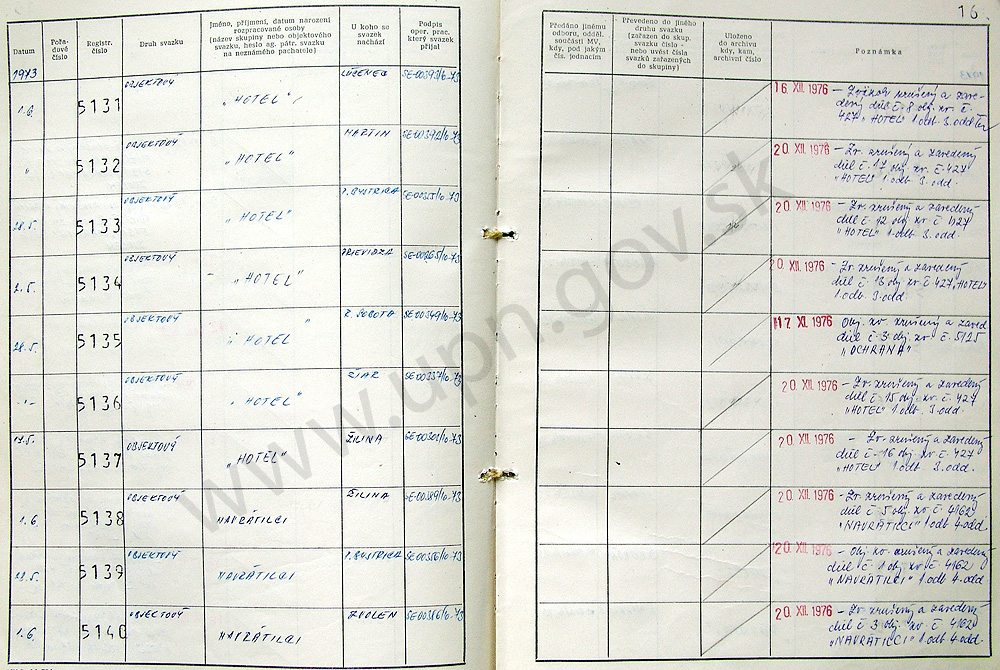 16.
Datum
Pořadové číslo
Registr. číslo
Druh svazku
Jméno, příjmení, datum narození
rozpracované osoby
(název skupiny nebo objektového
svazku, heslo ag. pátr. svazku
na neznámého pachatele)
U koho se
svazek
nachází
Podpis
oper. prac.
který svazek
přijal
Předáno jinému
odboru, odděl.
součásti MV,
kdy, pod jakým
čís. jednacím
Převedeno do jiného
druhu svazku
(zařazen do skup.
svazku číslo -
nebo uvést čísla
svazků zařazených
do skupiny)
Uloženo
do archivu
kdy, kam,
archivní číslo
Poznámka
1973
1.6. 5131 OBJEKTOVÝ „HOTEL" LUČENEC
16. XII. 1976 – zrušený a zave-
dený diel č. 8 obj. zv. č.
427 „HOTEL" 1 odb. 3. odd
" 5132 OBJEKTOVÝ „HOTEL" MARTIN
20. XII. 1976 – Zv. zrušený a zavedený
diel č. 17 obj. zv. č. 427
„HOTEL" 1 odb. 3. odd.
28.5. 5133 OBJEKTOVÝ „HOTEL" P. BYSTRICA
20. XII. 1976 – Zv. zrušený a zavedený
diel č. 12 obj. zv. č. 427
„HOTEL" 1 odb. 3. odd.
2.5. 5134 OBJEKTOVÝ „HOTEL" PRIEVIDZA
20. XII. 1976 – Zv. zrušený a zavedený
diel č. 13 obj. zv. č. 427 „HOTEL"
1. odb. 3. odd.
28.5. 5135 OBJEKTOVÝ „HOTEL" R. SOBOTA SE-00349/10-73
17. XI. 1976 Obj. zv. zrušený a zaved
diel č. 3 obj. zv. č. 5125
„OCHRANA"
-"- 5136 OBJEKTOVÝ „HOTEL" ŽIAR SE-00357/10-73
20. XII. 1976 – Zv. zrušený a zavedený
diel č. 15 obj. zv. č. 427
„HOTEL" 1 odb. 3. odd.
5137 OBJEKTOVÝ „HOTEL" ŽILINA SE-00301/10-73
20. XII. 1976 – Zv. zrušený a zavedený
diel č. 16 obj. zv. č. 427
„HOTEL" 1 odb. 3. odd.
1.6. 5138 OBJEKTOVÝ NAVRÁTILCI ŽILINA SE-00389/10-73
20. XII. 1976 – Zv. zrušený a zavedený
diel č. 5 obj. zv. č. 4162
„NAVRÁTILCI" 1 odb. 4. odd.
5139 OBJEKTOVÝ NAVRÁTILCI P. BYSTRICA SE-00356/10-73
20. XII. 1976 – Obj. zv. zrušený a zavedený
diel č. 1 obj. zv. č. 4162
„NAVRÁTILCI" 1 odb. 4. odd.
1.6. 5140 OBJEKTOVÝ NAVRÁTILCI ZVOLEN SE-00386/10-73
20. XII. 1976 – Zv. zrušený a zavedený
diel č. 3 obj. zv. č. 4162
„NAVRÁTILCI" 1 odb. 4. odd.
www.upn.gov.sk